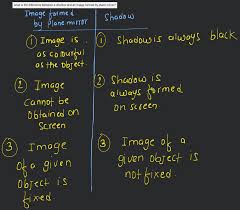 What is the difference between a shadow and an image formed by plane mirror?
Image formed
by plane mirror
Shadow
① Image is
as colourful
as the object.
① Shadow is always black
② Image
cannot be
obtained on
screen
② Shadow is
always formed
on screen.
③ Image
of a given
object is
fixed.
③ Image of a
given object is
not fixed.